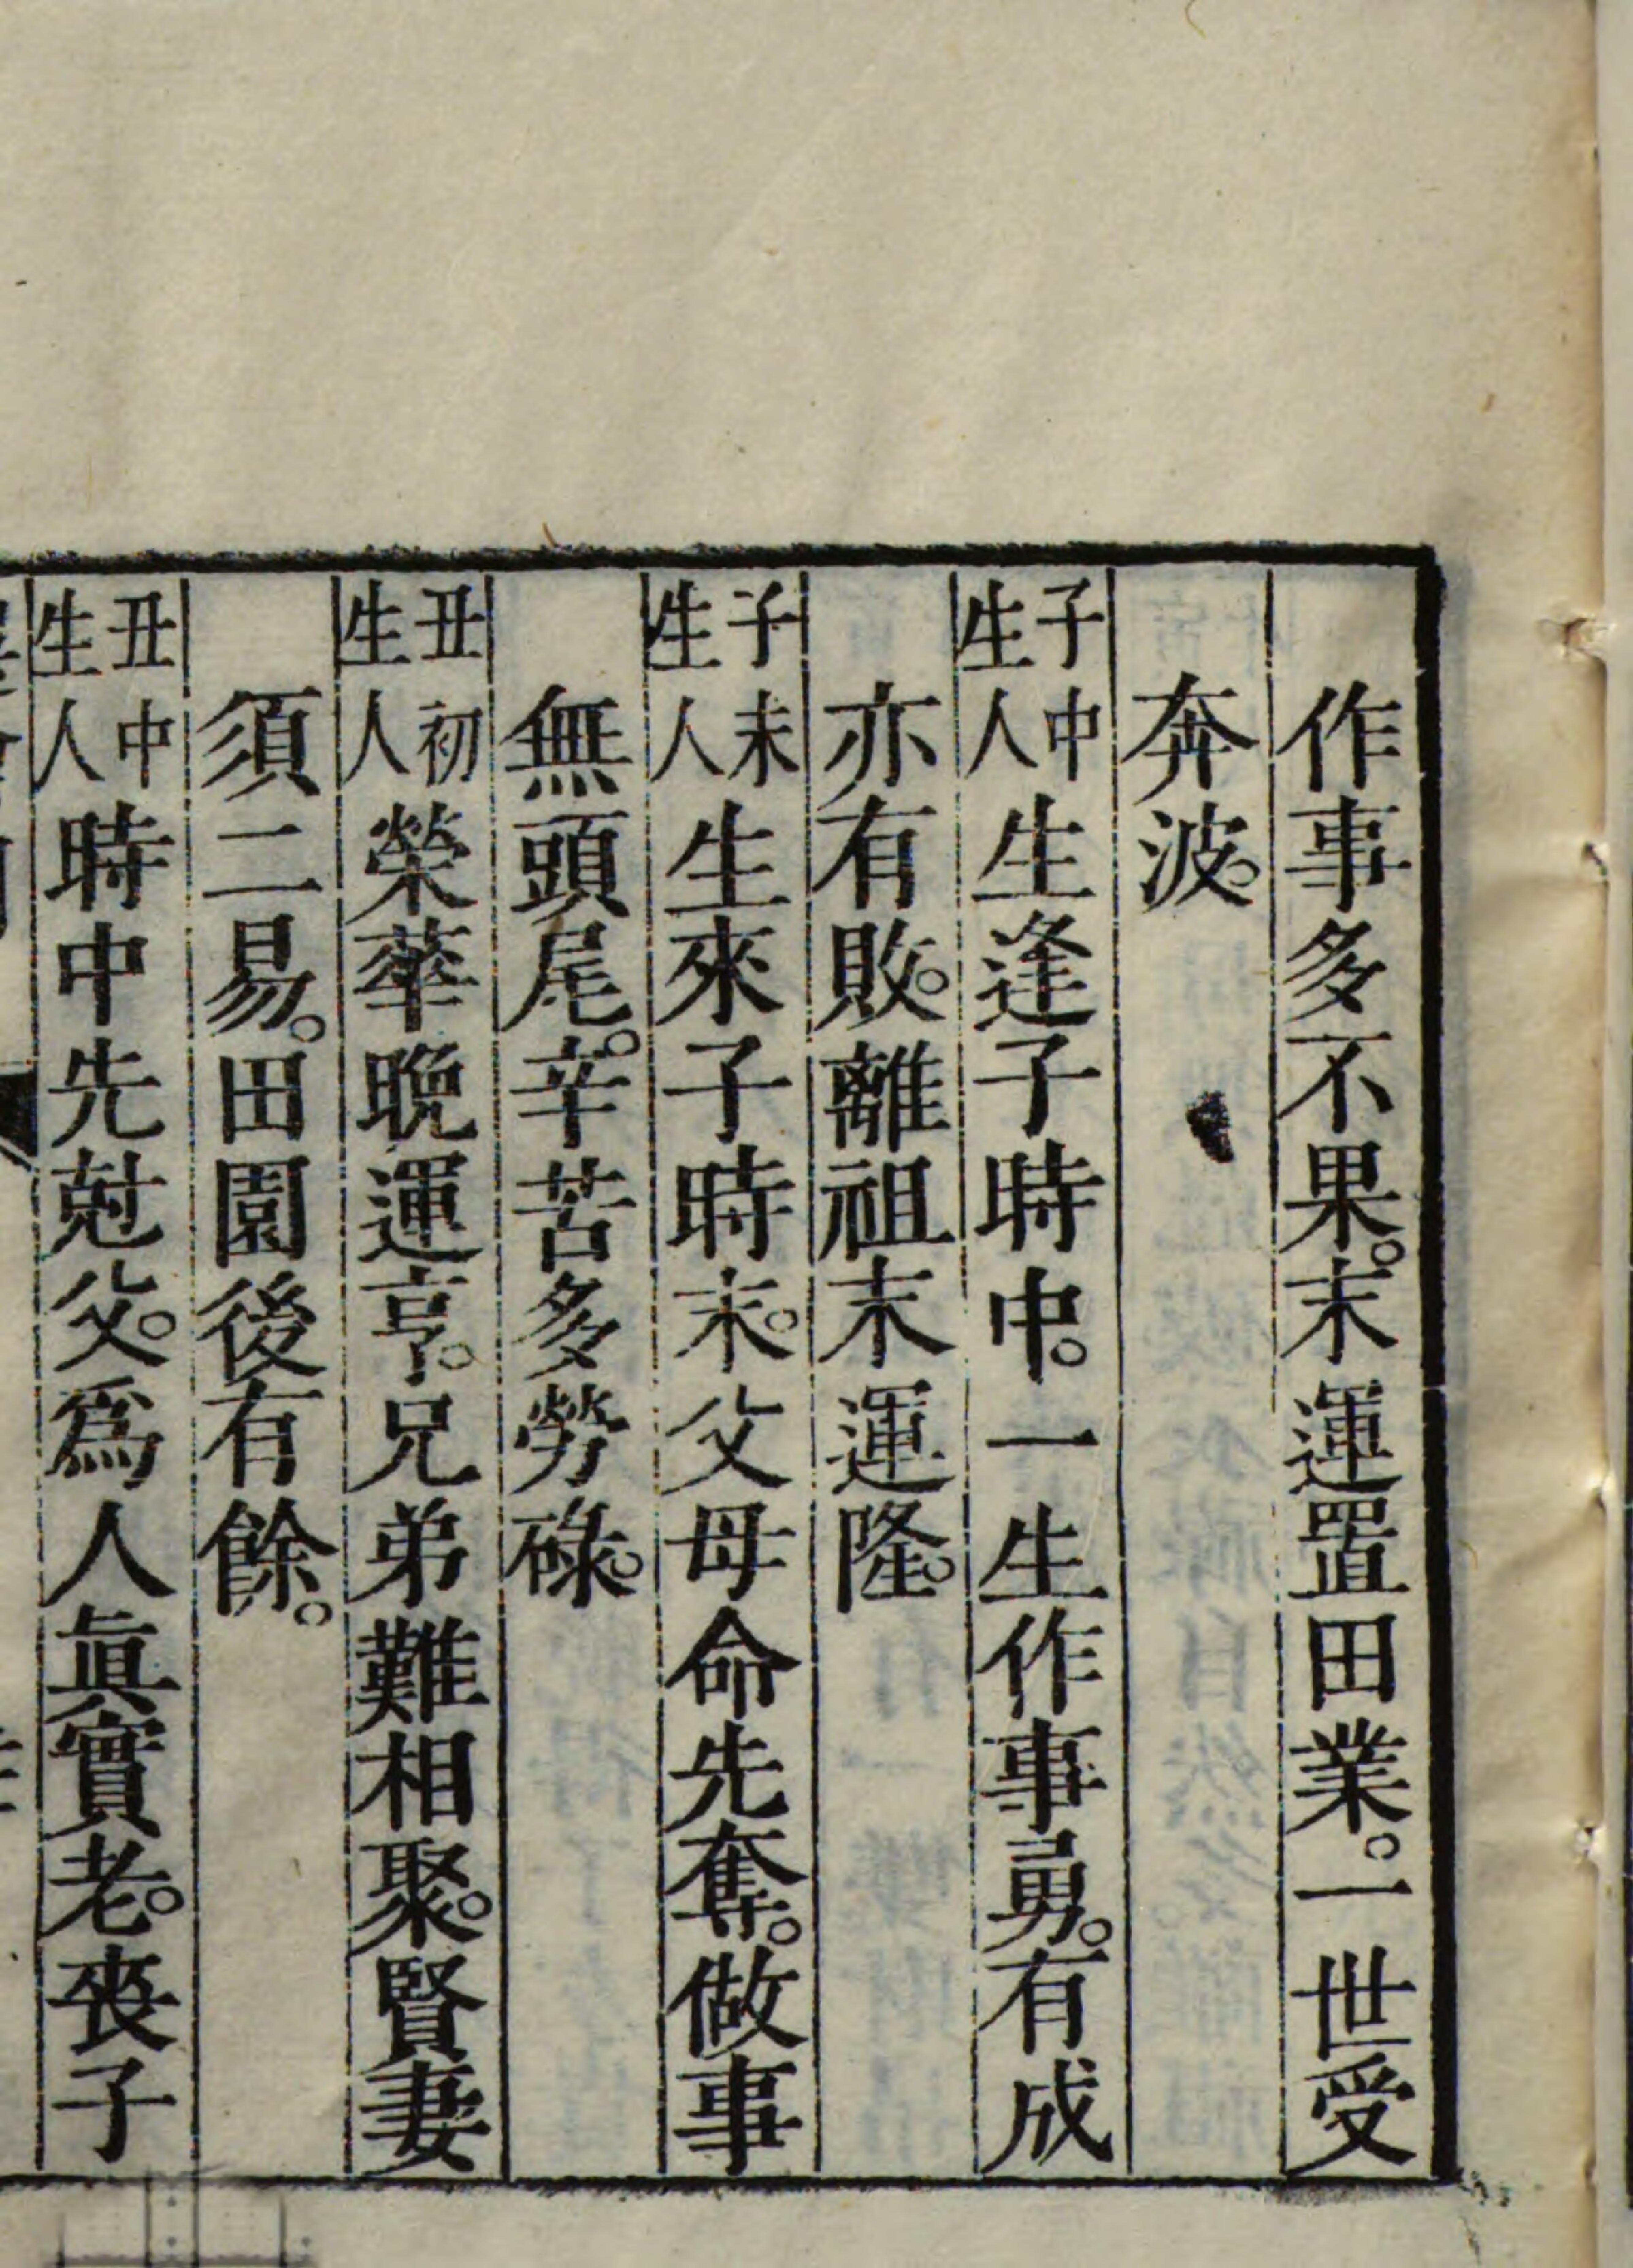 作事多不果。末運置田業。一世受
奔波。
子中生人生逢子時中。一生作事勇。有成
亦有敗。離祖末運隆。
子末生人生來子時末。父母命先奪。做事
無頭尾。辛苦多勞碌。
丑初生人榮華晚運亨。兄弟難相聚。賢妻
須二易。田園後有餘。
丑中生人時中先尅父。爲人眞實老。喪子